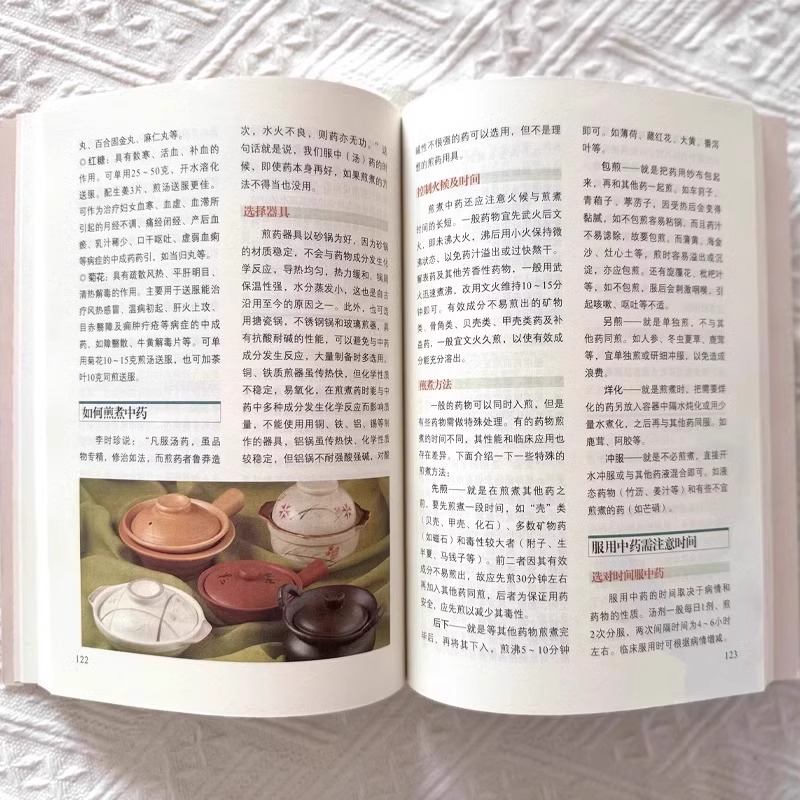 丸、百合固金丸、麻仁丸等。
◎红糖：具有散寒、活血、补血的
作用。可单用25～50克，开水溶化
送服。配生姜3片，煎汤送服更佳。
可作为治疗妇女血寒、血虚、血滞所
引起的月经不调、痛经闭经、产后血
瘀、乳汁稀少、口干呕吐、虚弱血痢
等病症的中成药药引，如当归丸等。
◎菊花：具有疏散风热、平肝明目、
清热解毒的作用。主要用于送服能治
疗风热感冒、温病初起、肝火上攻、
目赤翳障及痈肿疔疮等病症的中成
药，如障翳散、牛黄解毒片等。可单
用菊花10～15克煎汤送服，也可加茶
叶10克同煎送服。
如何煎煮中药
李时珍说：“凡服汤药，虽品
物专精，修治如法，而煎药者鲁莽造
次，水火不良，则药亦无功。”这
句话就是说，我们服中（汤）药的时
候，即使药本身再好，如果煎煮的方
法不得当也没用。
选择器具
煎药器具以砂锅为好，因为砂锅
的材质稳定，不会与药物成分发生化
学反应，导热均匀，热力缓和，锅周
保温性强，水分蒸发小，这也是自古
沿用至今的原因之一。此外，也可选
用搪瓷锅、不锈钢锅和玻璃煎器，具
有抗酸耐碱的性能，可以避免与中药
成分发生反应，大量制备时多选用。
铜、铁质煎器虽传热快，但化学性质
不稳定，易氧化，在煎煮药时能与中
药中多种成分发生化学反应而影响质
量，不能使用用铜、铁、铝、锡等制
作的器具，铝锅虽传热快，化学性质
较稳定，但铝锅不耐强酸强碱，对酸
122
碱性不很强的药可以选用，但不是理
想的煎药用具。
控制火候及时间
煎煮中药还应注意火候与煎煮
时间的长短。一般药物宜先武火后文
火，即未沸大火，沸后用小火保持微
沸状态，以免药汁溢出或过快熬干。
解表药及其他芳香性药物，一般用武
火迅速煮沸，改用文火维持10～15分
钟即可。有效成分不易煎出的矿物
类、骨角类、贝壳类、甲壳类药及补
益药，一般宜文火久煎，以使有效成
分能充分溶出。
煎煮方法
一般的药物可以同时入煎，但是
有些药物需做特殊处理。有的药物煎
煮的时间不同，其性能和临床应用也
存在差异。下面介绍一下一些特殊的
煎煮方法：
先煎——就是在煎煮其他药之
前，要先煎煮一段时间，如“壳”类
（贝壳、甲壳、化石）、多数矿物药
（如磁石）和毒性较大者（附子、生
半夏、马钱子等）。前二者因其有效
成分不易煎出，故应先煎30分钟左右
再加入其他药同煎，后者为保证用药
安全，应先煎以减少其毒性。
后下——就是等其他药物煎煮完
毕后，再将其下入，煎沸5～10分钟
即可。如薄荷、藏红花、大黄、番泻
叶等。
包煎——就是把药用纱布包起
来，再和其他药一起煎。如车前子、
青葙子、葶苈子，因受热后会变得
黏腻，如不包煎容易粘锅，而且药汁
不易滤除，故要包煎。而蒲黄、海金
沙、灶心土等，煎时容易溢出或沉
淀，亦应包煎。还有旋覆花、枇杷叶
等，如不包煎，服后会刺激咽喉，引
起咳嗽、呕吐等不适。
另煎——就是单独煎，不与其
他药同煎。如人参、冬虫夏草、鹿茸
等，宜单独煎或研细冲服，以免造成
浪费。
烊化——就是煎煮时，把需要烊
化的药另放入容器中隔水炖化或用少
量水煮化，之后再与其他药同服。如
鹿茸、阿胶等。
冲服——就是不必煎煮，直接开
水冲服或与其他药液混合即可。如液
态药物（竹沥、姜汁等）和有些不宜
煎煮的药（如芒硝）。
服用中药需注意时间
选对时间服中药
服用中药的时间取决于病情和
药物的性质。汤剂一般每日1剂、煎
2次分服，两次间隔时间为4～6小时
左右。临床服用时可根据病情增减，
123